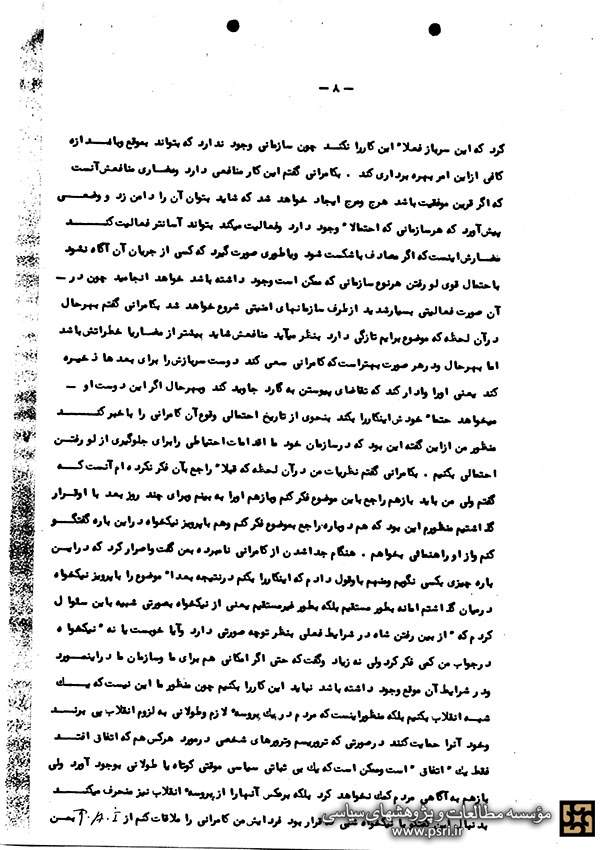 — ۸ —
کرد که این سرباز فعلا" این کاررا نکند چون سازمانی وجود ندارد که بتواند بموقع وباندازه
کافی ازاین امر بهره برداری کند . بکامرانی گفتم این کار منافعی دارد ومضاری منافعش آنست
که اگر قرین موفقیت باشد هرج ومرج ایجاد خواهد شد که شاید بتوان آن را دامن زد و وضعی
پیش آورد که هرسازمانی که احتمالا" وجود دارد وفعالیت میکند بتواند آسانتر فعالیت کند
مضارش اینست که اگر مصادف باشکست شود ویاطوری صورت گیرد که کسی از جریان آن آگاه نشود
باحتمال قوی لو رفتن هرنوع سازمانی که ممکن است وجود داشته باشد خواهد انجامید چون در —
آن صورت فعالیتی بسیارشدید ازطرف سازمانهای امنیتی شروع خواهد شد بکامرانی گفتم بهرحال
درآن لحظه که موضوع برایم تازگی دارد بنظر میآید منافعش شاید بیشتر از مضاریا خطراتش باشد
اما بهرحال ودرهر صورت بهتراست که کامرانی سعی کند دوست سربازش را برای بعدها ذخیره
کند یعنی اورا وادار کند که تقاضای پیوستن به گارد جاوید کند وبهرحال اگر این دوست او —
میخواهد حتما" خودش اینکاررا بکند بنحوی از تاریخ احتمالی وقوع آن کامرانی را باخبر کند
منظور من ازاین گفته این بود که درسازمان خود ما اقدامات احتیاطی رابرای جلوگیری از لو رفتن
احتمالی بکنیم . بکامرانی گفتم نظریات من درآن لحظه که قبلا" راجع بآن فکر نکرده ام آنست که
گفتم ولی من باید بازهم راجع باین موضوع فکر کنم وبازهم اورا به بینم وبرای چند روز بعد با اوقرار
گذاشتیم منظورم این بود که هم دوباره راجع بموضوع فکر کنم وهم باپرویز نیکخواه دراین باره گفتگو
کنم واز او راهنمائی بخواهم . هنگام جداشدن از کامرانی نامبرده بمن گفت واصرار کرد که دراین
باره چیزی بکسی نگویم ومنهم باوقول دادم که اینکاررا بکنم درنتیجه بعدا" موضوع را باپرویز نیکخواه
درمیان گذاشتم امانه بطور مستقیم بلکه بطور غیرمستقیم یعنی از نیکخواه بصورتی شبیه باین سئوال
کردم که " از بین رفتن شاه در شرایط فعلی بنظر توچه صورتی دارد وآیا خوبست یا نه " نیکخواه
درجواب من کمی فکر کرد ولی نه زیاد وگفت که حتی اگر امکانی هم برای ما وسازمان ما دراینمورد
ودر شرایط آن موقع وجود داشته باشد نباید این کاررا بکنیم چون منظور ما این نیست که یک
شبه انقلاب بکنیم بلکه منظوراینست که مردم دریک پروسه" لازم وطولانی به لزوم انقلاب پی برند
وخود آنرا حمایت کنند درصورتی که تروریسم وترورهای شخصی درمورد هرکس هم که اتفاق افتد
فقط یک " اتفاق " است وممکن است که یک بی ثباتی سیاسی موقتی کوتاه یا طولانی بوجود آورد ولی
بازهم به آگاهی مردم کمک نخواهد کرد بلکه برعکس آنهارا از پروسه" انقلاب نیز منحرف میکند
بدنبال این گفتگو با نیکخواه قرار بود فردایش من کامرانی را ملاقات کنم از بمن
مؤسسه مطالعات و پژوهشهای سیاسی
www.psri.ir